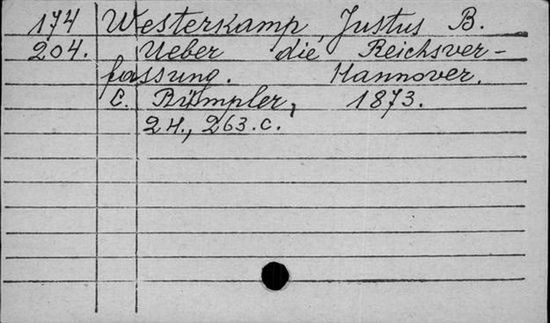 174 Westerkamp, Justus B.
204. Ueber die Reichsver-
fassung. Hannover,
C. Rümpler, 1873.
24., 263.c.